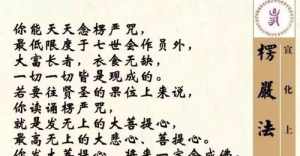 你能天天念楞严咒，
最低限度于七世会作员外，
大富长者，衣食无缺，
一切一切皆是现成的。
若要往贤圣的果位上来说，
你读诵楞严咒，
就是发无上的大菩提心，
最高无上的大悲心、菩提心。
你发大菩提心，将来一定会成佛
宣化上
楞嚴法